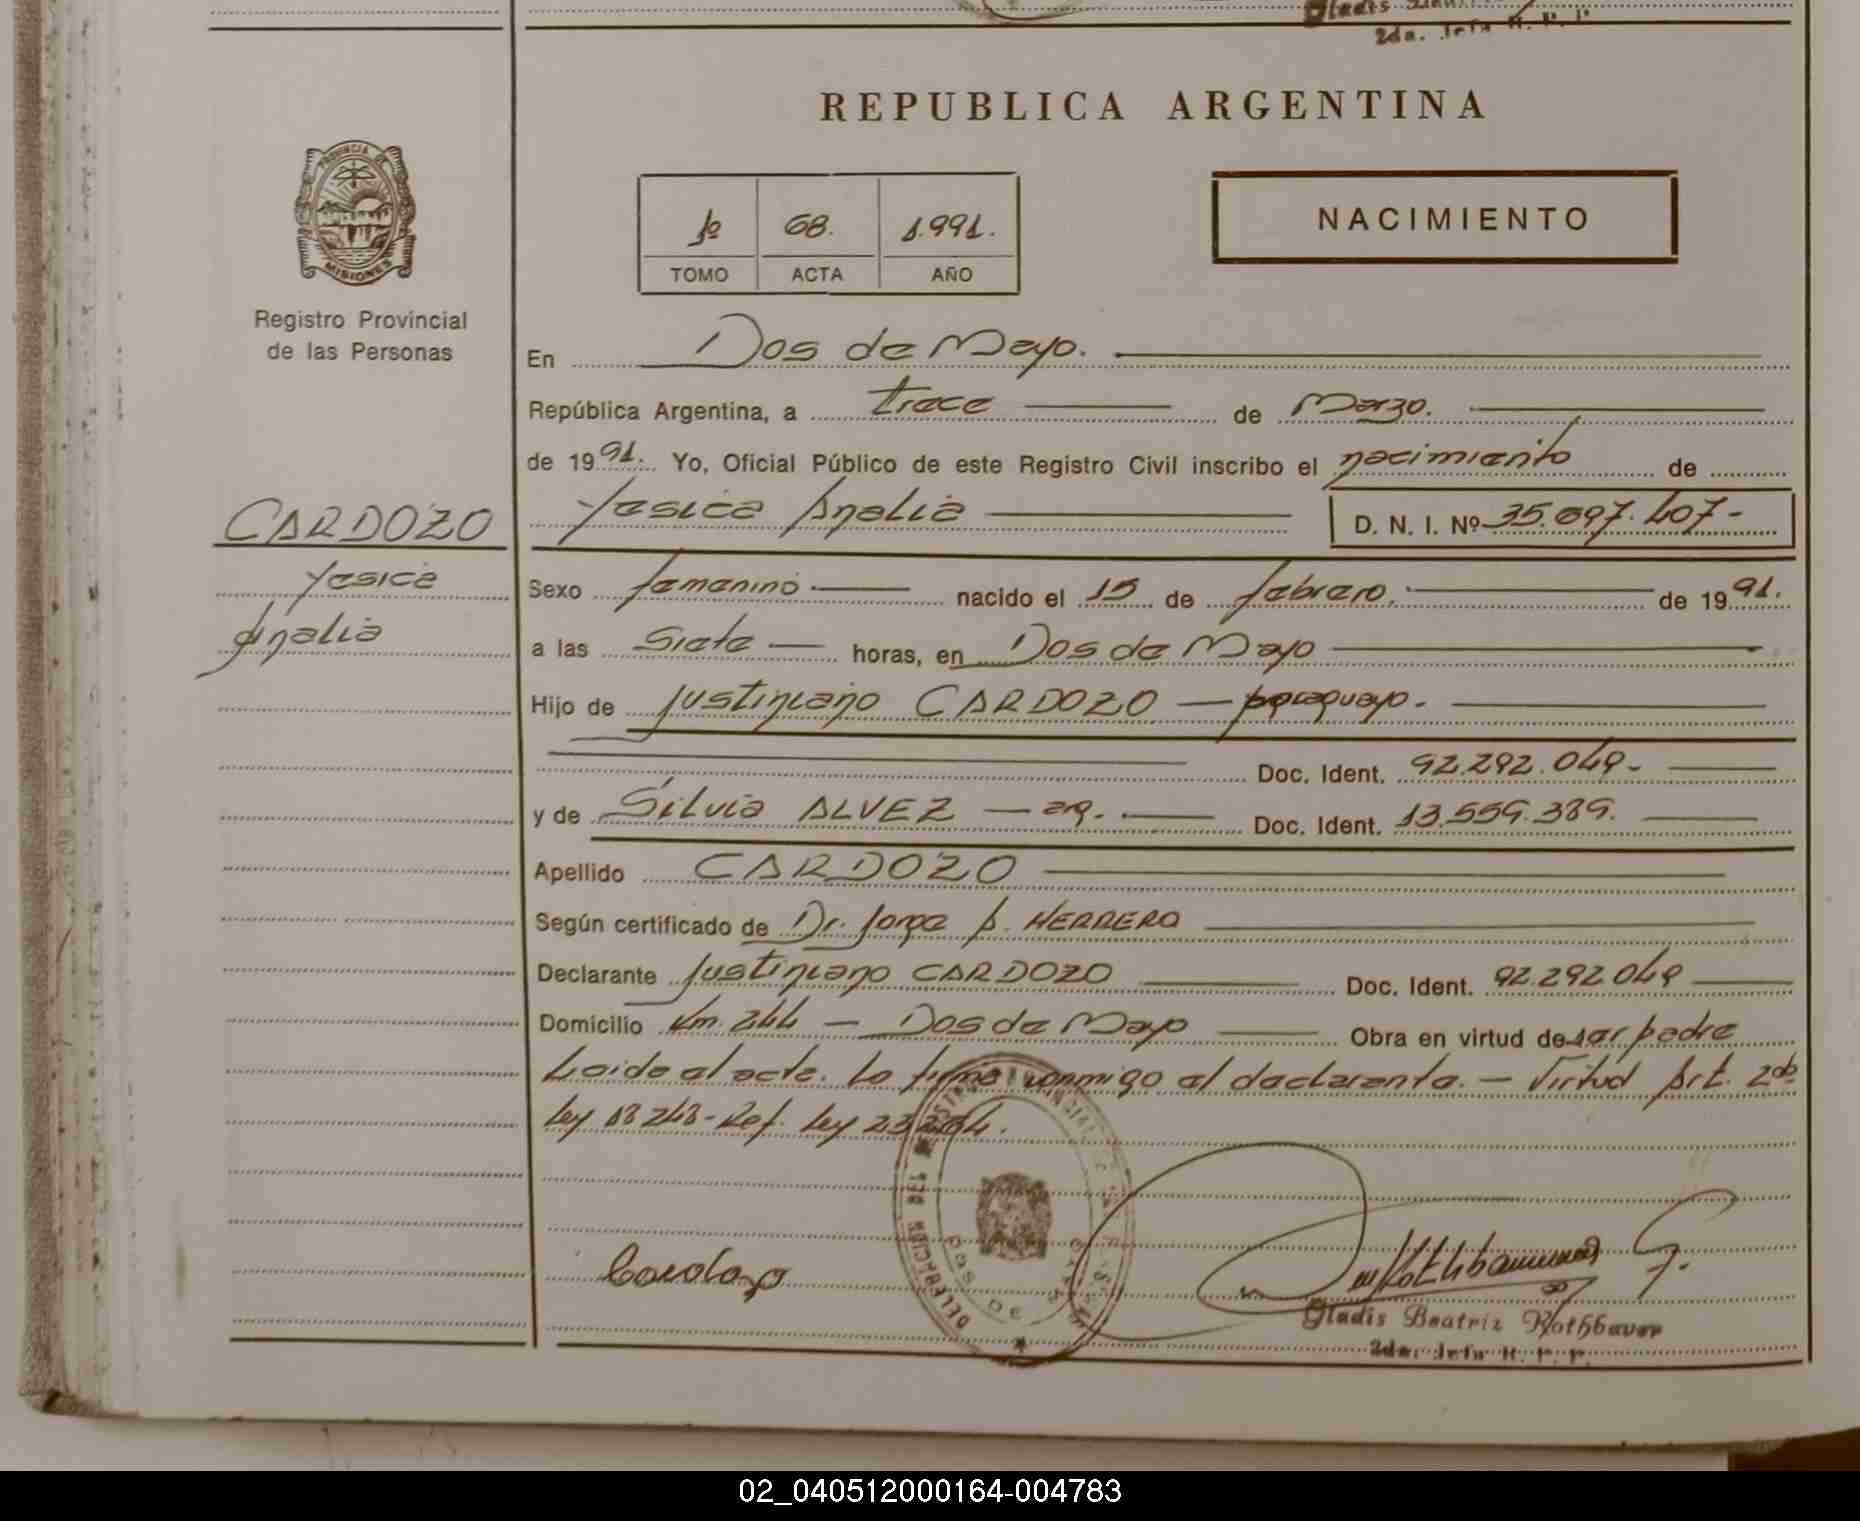 Gladis
2da. Jefa R. P. P.
REPUBLICA ARGENTINA
PROVINCIA DE
MISIONES
1º 68. 1.991.
TOMO ACTA AÑO
NACIMIENTO
Registro Provincial
de las Personas
En Dos de Mayo.
República Argentina, a trece de Marzo.
de 1991. Yo, Oficial Público de este Registro Civil inscribo el nacimiento de
CARDOZO
Yesica Analia D. N. I. Nº 35.697.407-
Yesica
Analia
Sexo femenino nacido el 15 de febrero. de 1991.
a las Siete horas, en Dos de Mayo
Hijo de Justiniano CARDOZO — paraguayo.
Doc. Ident. 92.292.049-
y de Silvia ALVEZ — arg. Doc. Ident. 13.559.389.
Apellido CARDOZO
Según certificado de Dr. Jorge A. HERRERO
Declarante Justiniano CARDOZO Doc. Ident. 92.292.049
Domicilio Km. 244 — Dos de Mayo Obra en virtud de ser padre
Leida el acta. La firma conmigo el declarante. — Virtud Art. 2do
Ley 18248- Ref. Ley 23264.
DELEGACION
DOS DE MAYO
Cardozo
Gladis Beatriz Rothbauer
2da. Jefa R. P. P.
02_040512000164-004783